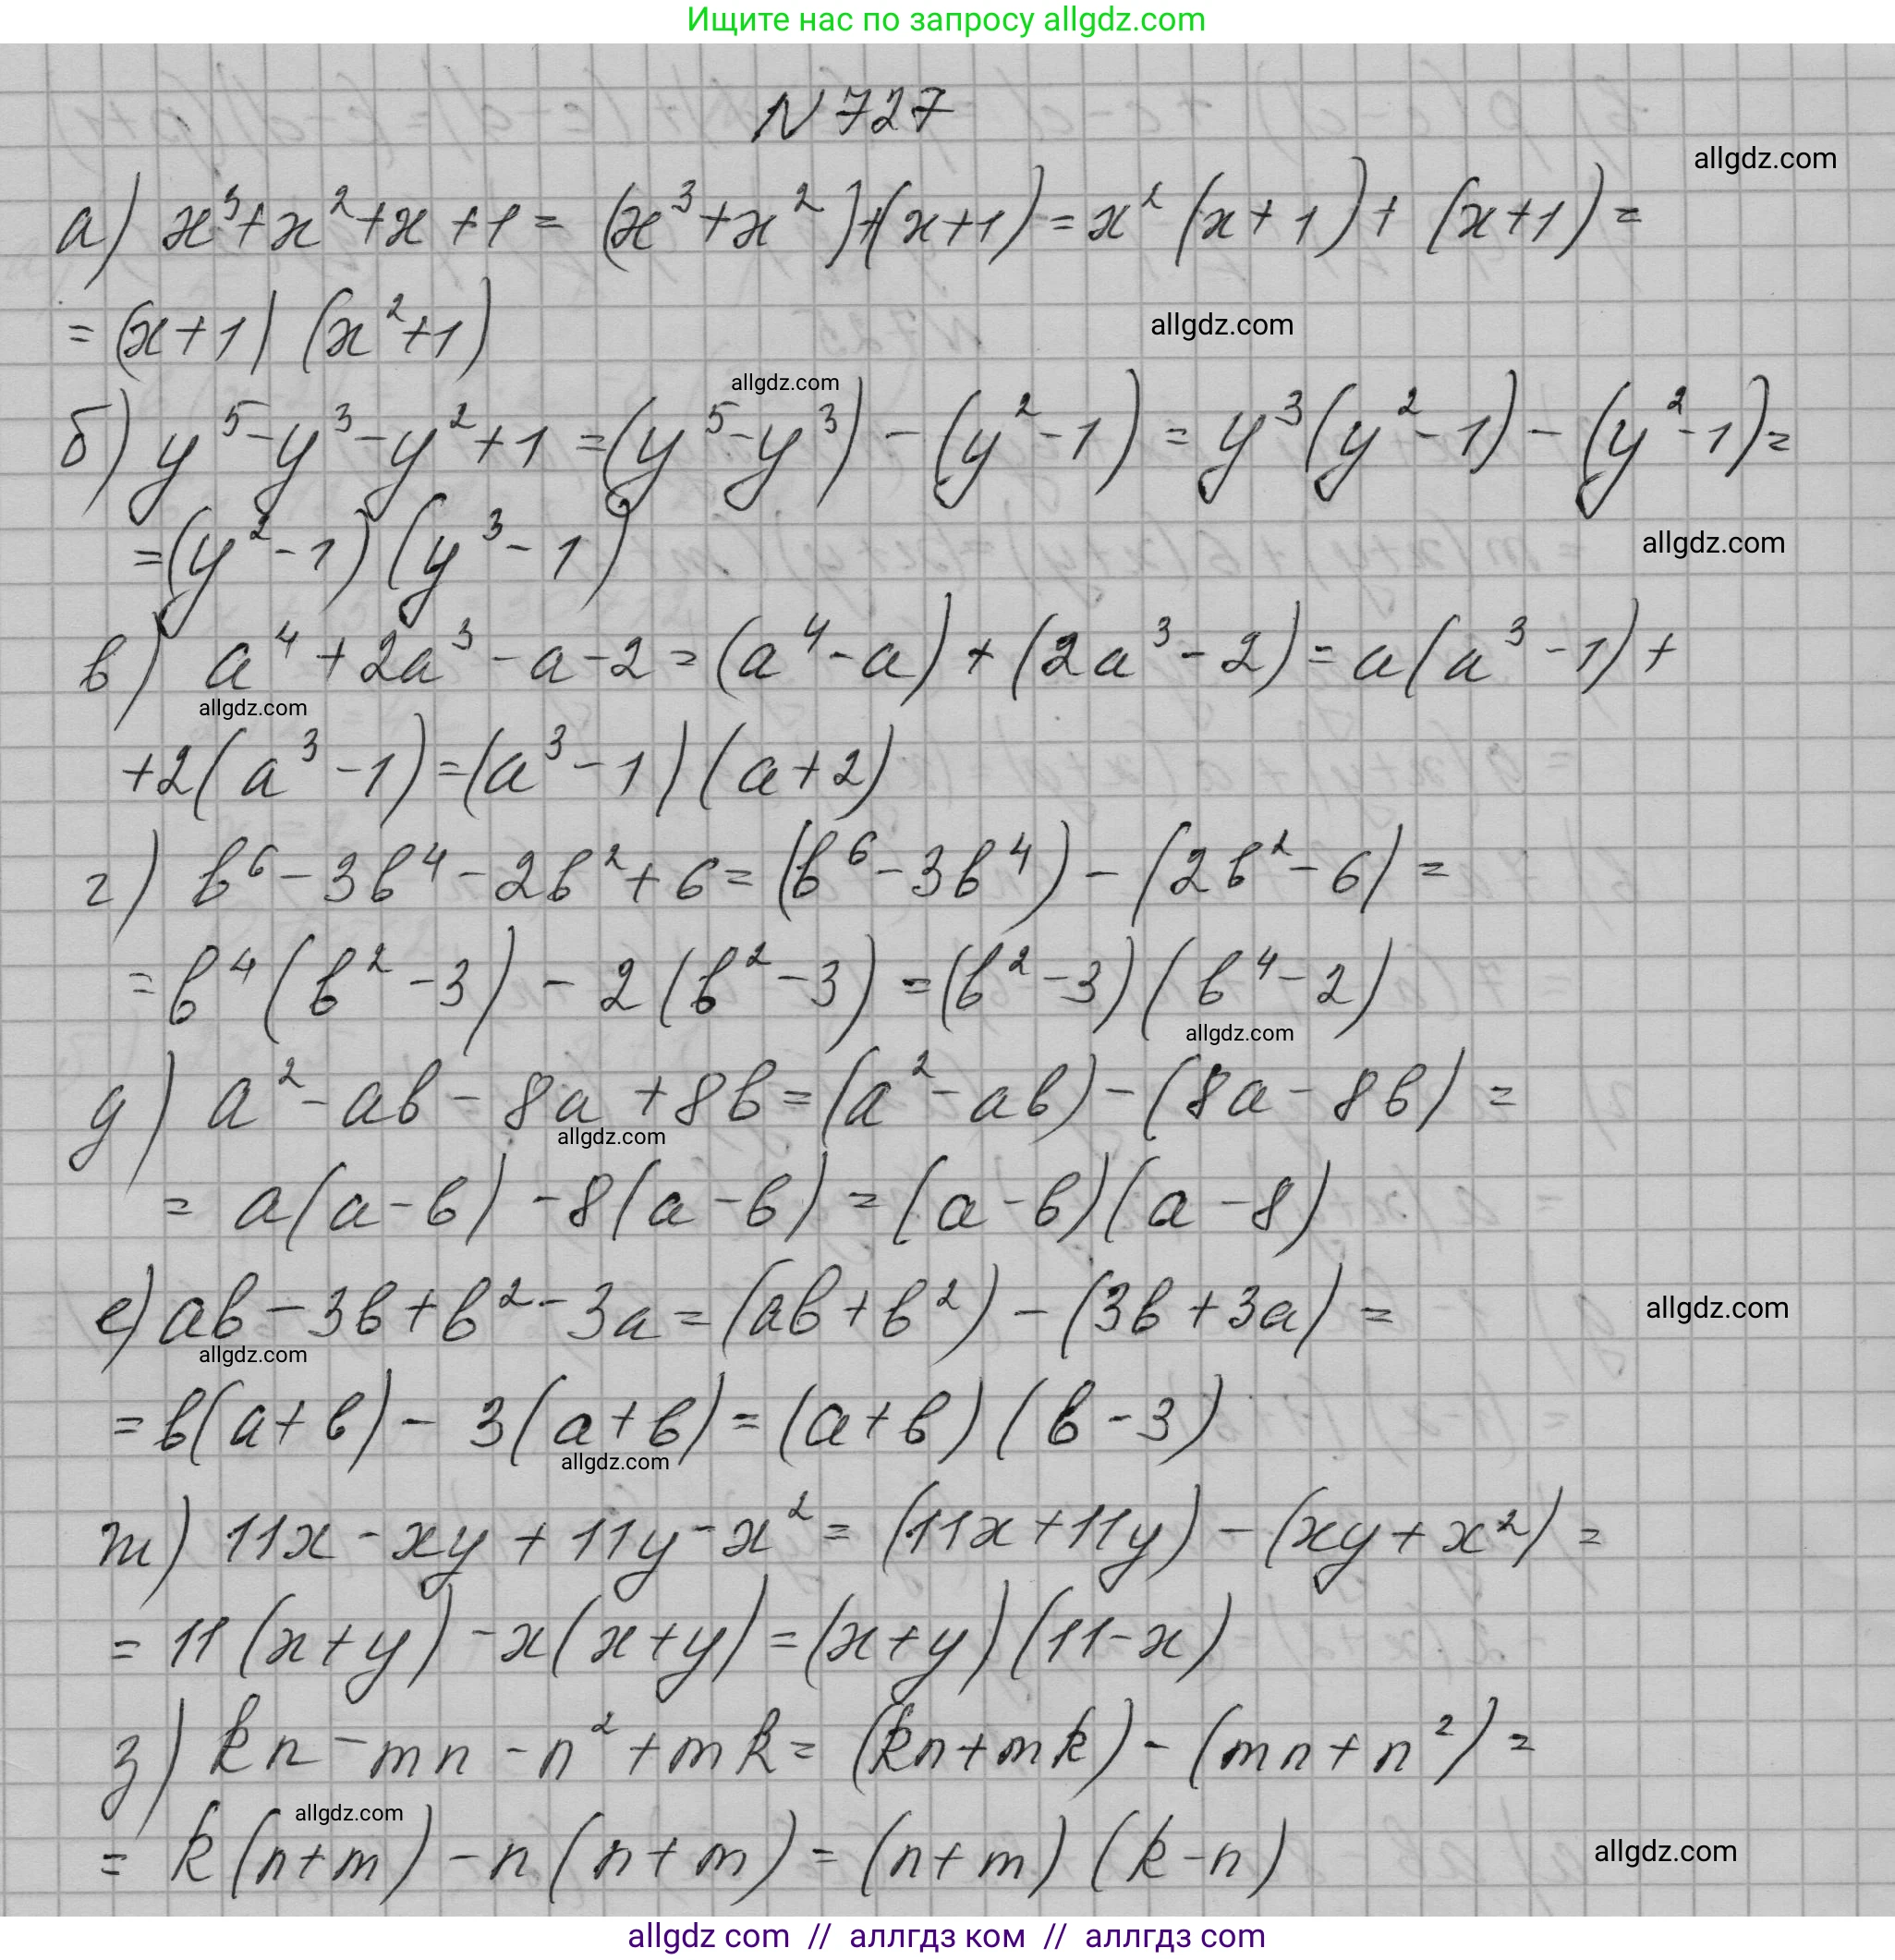 Ищите нас по запросу allgdz.com
N 727
allgdz.com
а) x³+x²+x+1= (x³+x²)+(x+1)=x²(x+1)+ (x+1)=
= (x+1) (x²+1)
allgdz.com
allgdz.com
б) y⁵-y³-y²+1=(y⁵-y³)-(y²-1)=y³(y²-1)-(y²-1)=
=(y²-1)(y³-1)
allgdz.com
в) a⁴+2a³-a-2=(a⁴-a)+(2a³-2)=a(a³-1)+
allgdz.com
+2(a³-1)=(a³-1)(a+2)
г) b⁶-3b⁴-2b²+6=(b⁶-3b⁴)-(2b²-6)=
=b⁴(b²-3)-2(b²-3)=(b²-3)(b⁴-2)
allgdz.com
д) a²-ab-8a+8b=(a²-ab)-(8a-8b)=
allgdz.com
= a(a-b)-8(a-b)=(a-b)(a-8)
е) ab-3b+b²-3a=(ab+b²)-(3b+3a)=
allgdz.com
allgdz.com
=b(a+b)-3(a+b)=(a+b)(b-3)
allgdz.com
ж) 11x-xy+11y-x²=(11x+11y)-(xy+x²)=
=11(x+y)-x(x+y)=(x+y)(11-x)
з) kn-mn-n²+mk=(kn+mk)-(mn+n²)=
allgdz.com
= k(n+m)-n(n+m)=(n+m)(k-n)
allgdz.com
allgdz com // аллгдз ком // аллгдз com